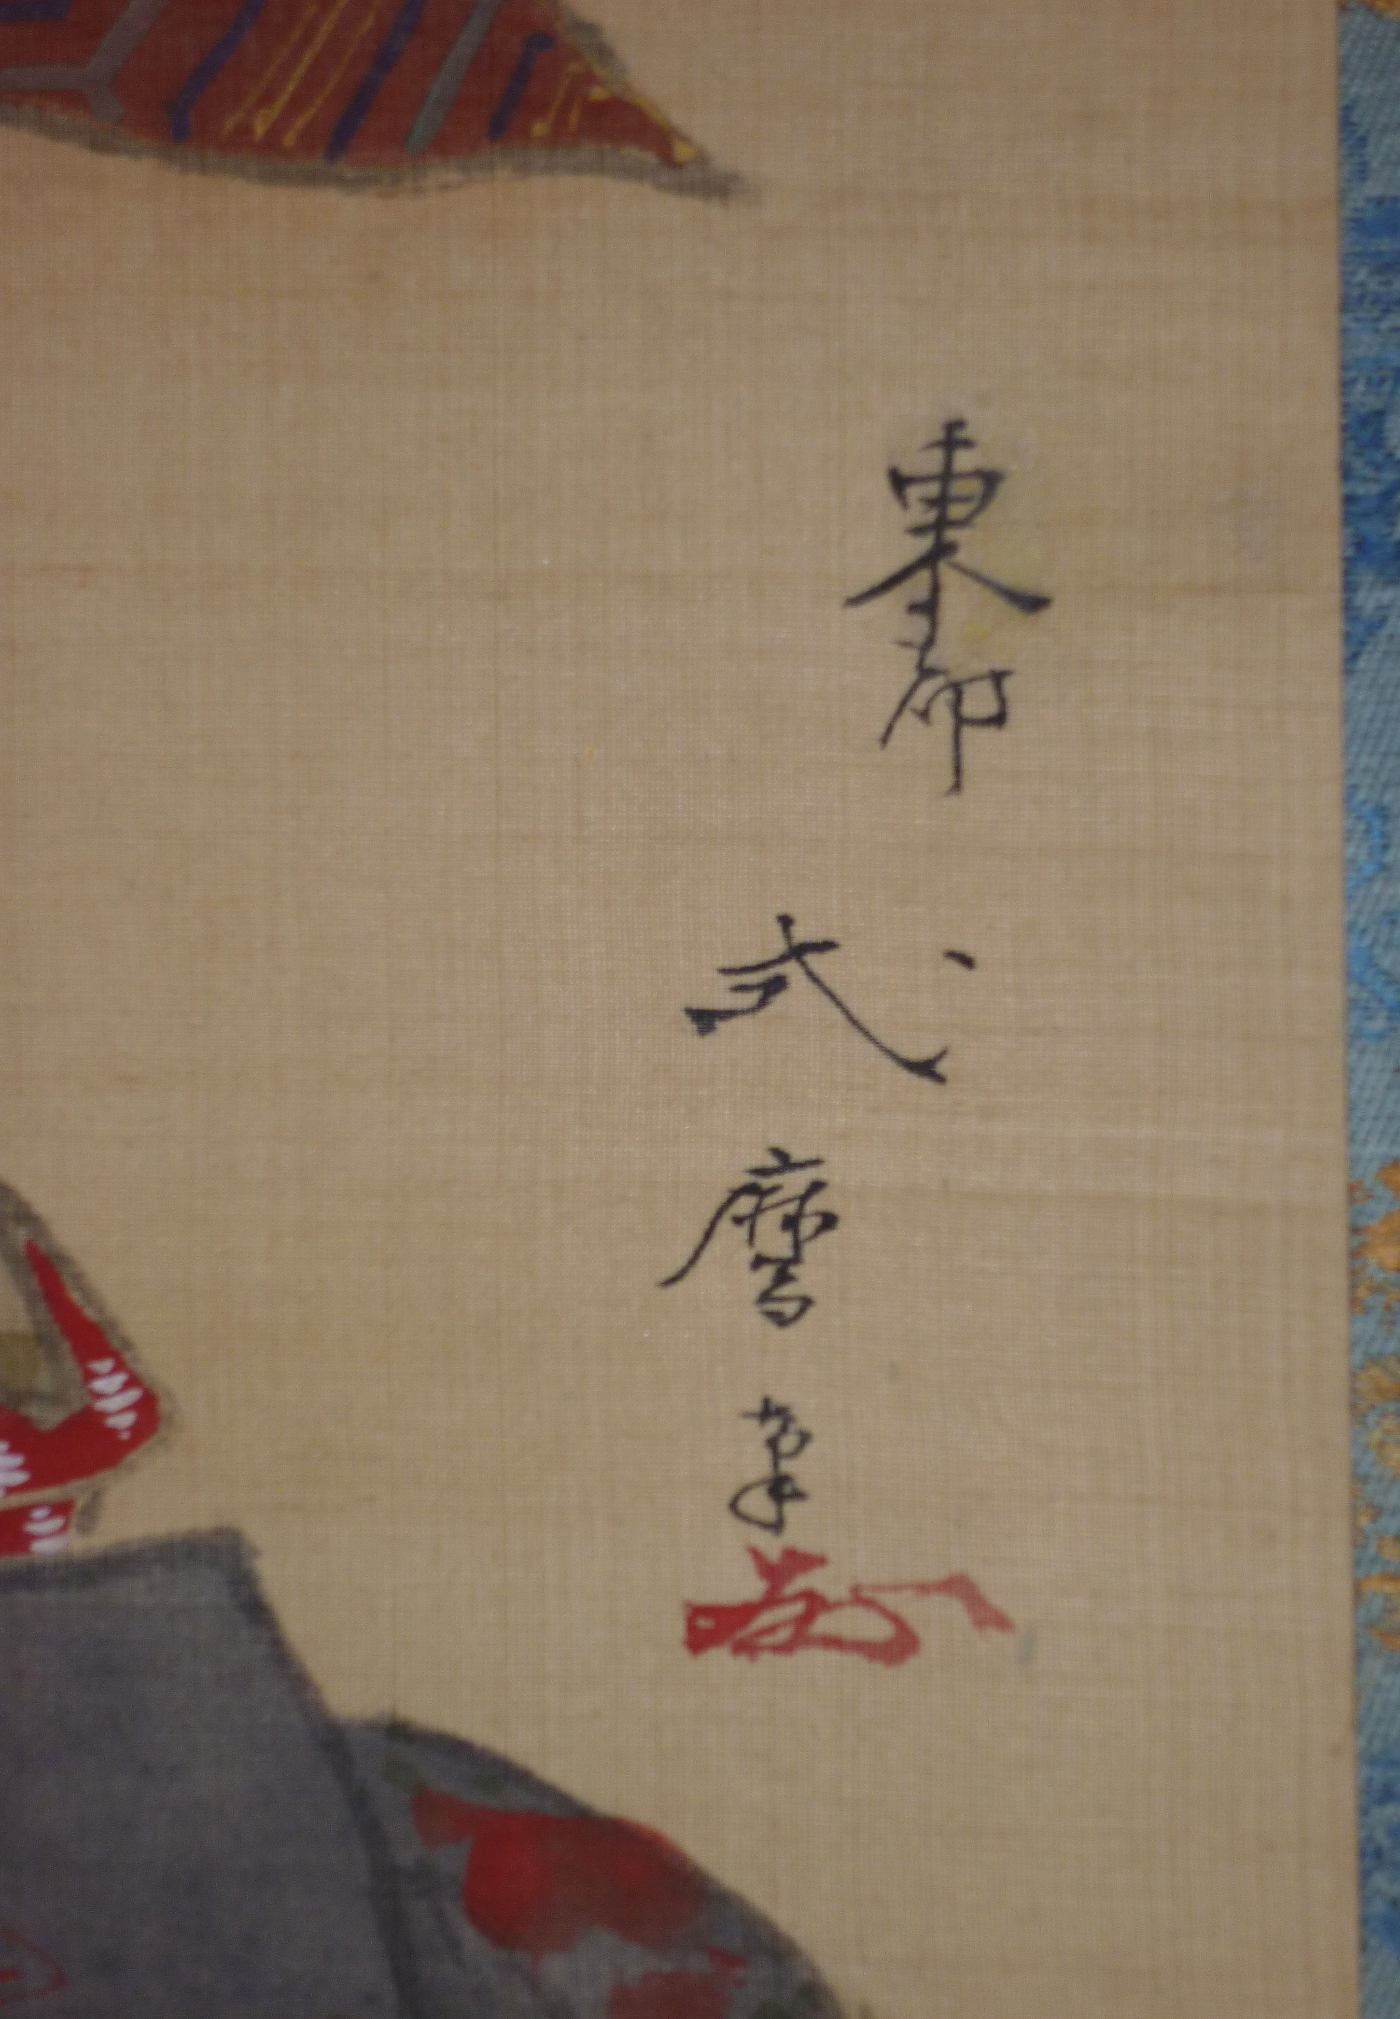 東都
式麿筆